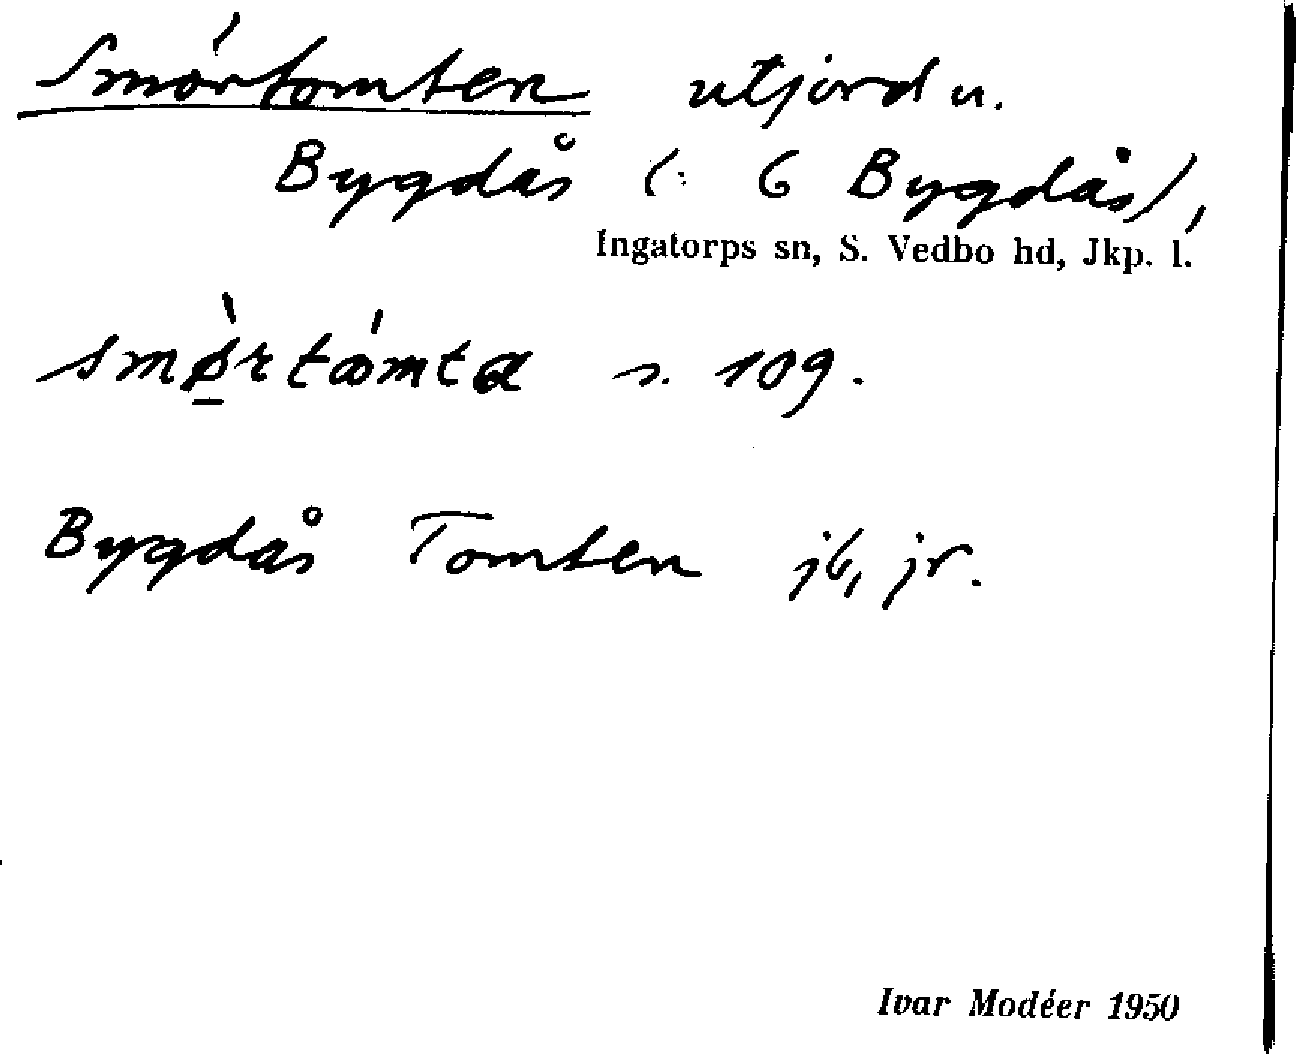 Smörtomten utjord u.
Bygdås (: 6 Bygdås),
Ingatorps sn, S. Vedbo hd, Jkp. l.
smø̱̀rtåmta s. 109.
Bygdås Tomten jb, jr.
Ivar Modéer 1950